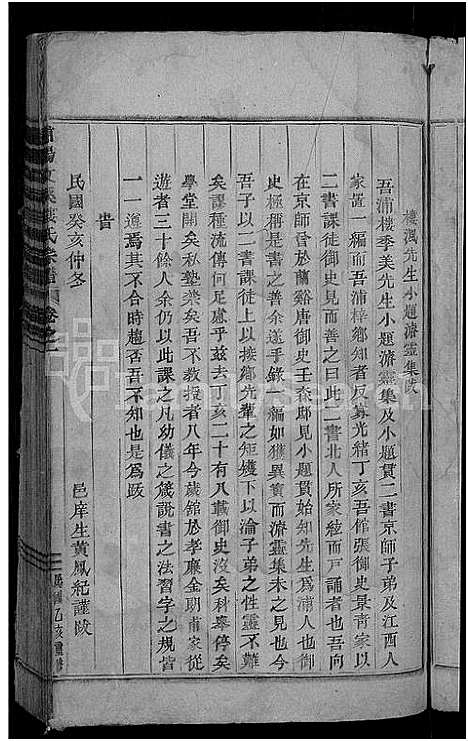 樓渢先生小題濬靈集跋
吾浦樓季美先生小題濬靈集及小題貫二書京師子弟及江西人
家置一編而吾浦梓鄉知者反寡光緒丁亥吾館張御史景青家以
二書課徒御史見而善之曰此二書北人所家絃而戶誦者也吾向
在京師曾於蘭谿唐御史壬森邸見小題貫始知先生為浦人也御
史極稱是書之善余遂手錄一編如獲異寶而濬靈集未之見也今
吾子以一二書課徒上以接鄉先輩之矩矱下以淪子弟之性靈不難
矣謬種流傳何足慮乎茲去丁亥二十有八載御史沒矣科舉停矣
學堂開矣私塾禁矣吾不教授者八年今歲館於孝廉金朗甫家從
遊者三十餘人余仍以此課之凡幼儀之箴說書之法習字之規皆
一一遵焉其不合時趨否吾不知也是為跋
旹
民國癸亥仲冬
邑庠生黃鳳紀謹跋
氏宗譜
卷之一
乙亥重修